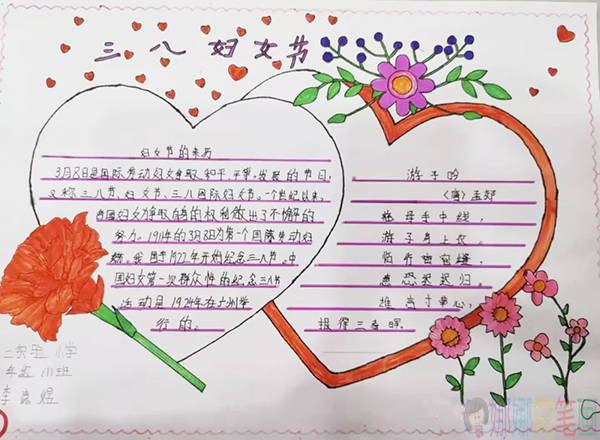 三八妇女节
妇女节的来历
3月8日是国际劳动妇女争取和平、平等、发展的节日,
又称三八节、妇女节、三八国际妇女节。一个世纪以来,
各国妇女为争取的权利做出了不懈的
努力。1911年的3月8日为第一个国际劳动妇
我国于1922年开始纪念三八节。中
国妇女第一次群众性的纪念三八节
活动是1924年在广州举
行的。
游子吟
〈唐〉孟郊
慈母手中线,
游子身上衣。
临行密密缝,
意恐迟迟归。
谁言寸草心,
报得三春晖。
实验小学
年级
李